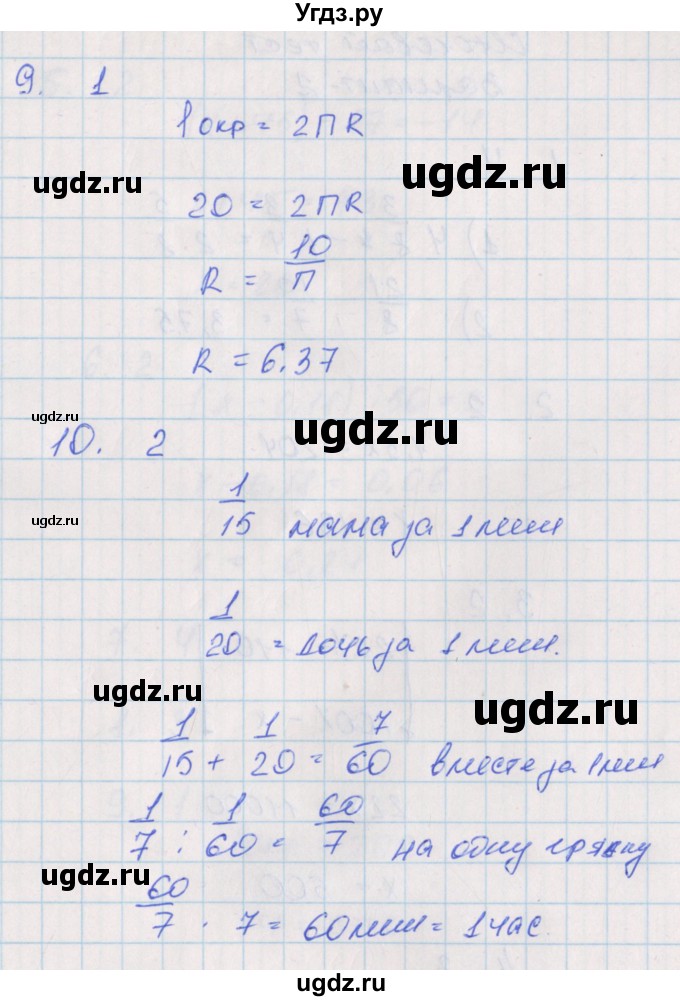 Угдз.ру
9. 1
lокр = 2ПR
ugdz.ru ugdz.ru
20 = 2ПR
R = 10/П
ugdz.ru
R = 6.37
ugdz.ru ugdz.ru
10. 2
ugdz.ru
1/15 мама за 1 мин
1/20 = дочь за 1 мин.
ugdz.ru ugdz.ru
1/15 + 1/20 = 7/60 вместе за 1 мин
1/7 : 1/60 = 60/7 на одну грядку
ugdz.ru ugdz.ru
60/7 · 7 = 60 мин = 1 час.
ugdz.ru